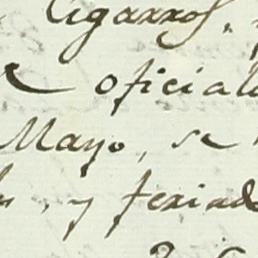 Cigarros,
oficial
Mayo, se
y feriad